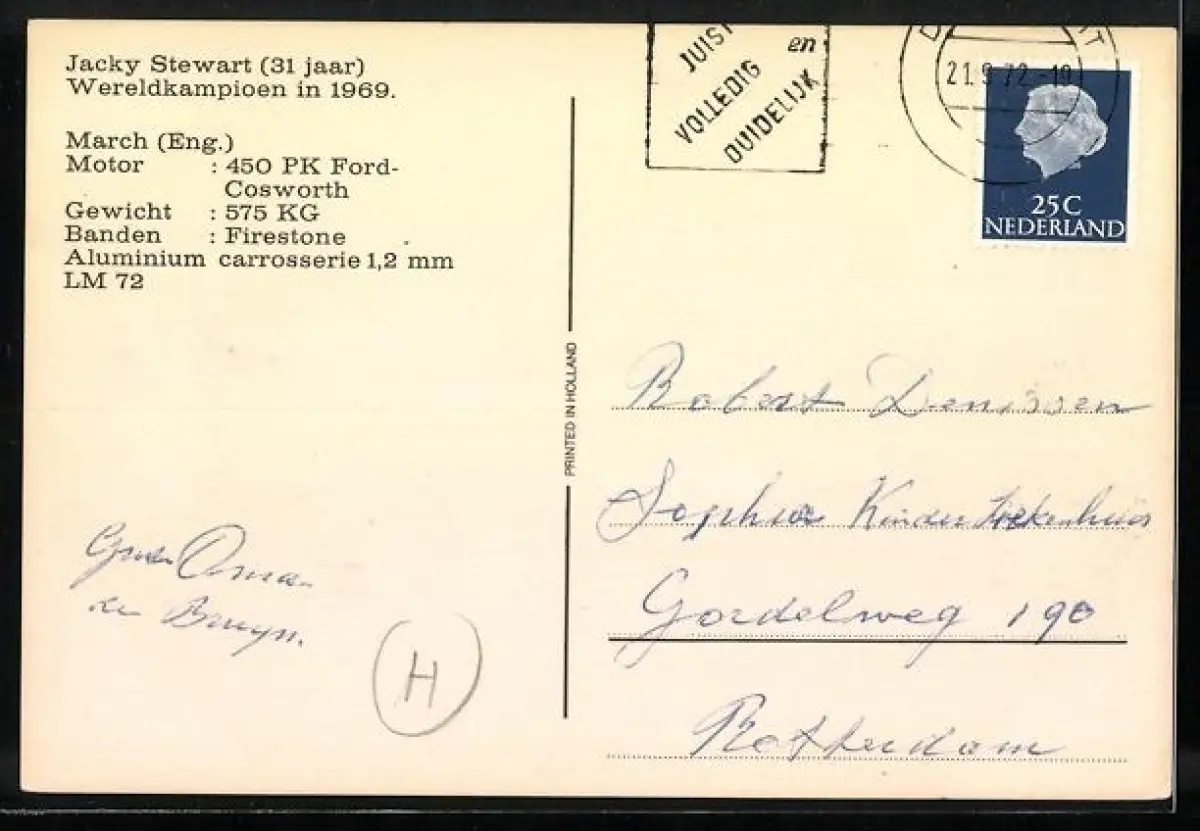 Jacky Stewart (31 jaar)
Wereldkampioen in 1969.
March (Eng.)
Motor : 450 PK Ford-
Cosworth
Gewicht : 575 KG
Banden : Firestone
Aluminium carrosserie 1,2 mm
LM 72
JUIST
en
VOLLEDIG
DUIDELIJK
21.9.72.-19
25C
NEDERLAND
PRINTED IN HOLLAND
Robert Denissen
Sophia Kinder Ziekenhuis
Gordelweg 190
Rotterdam
Oma
de Bruyn.
H